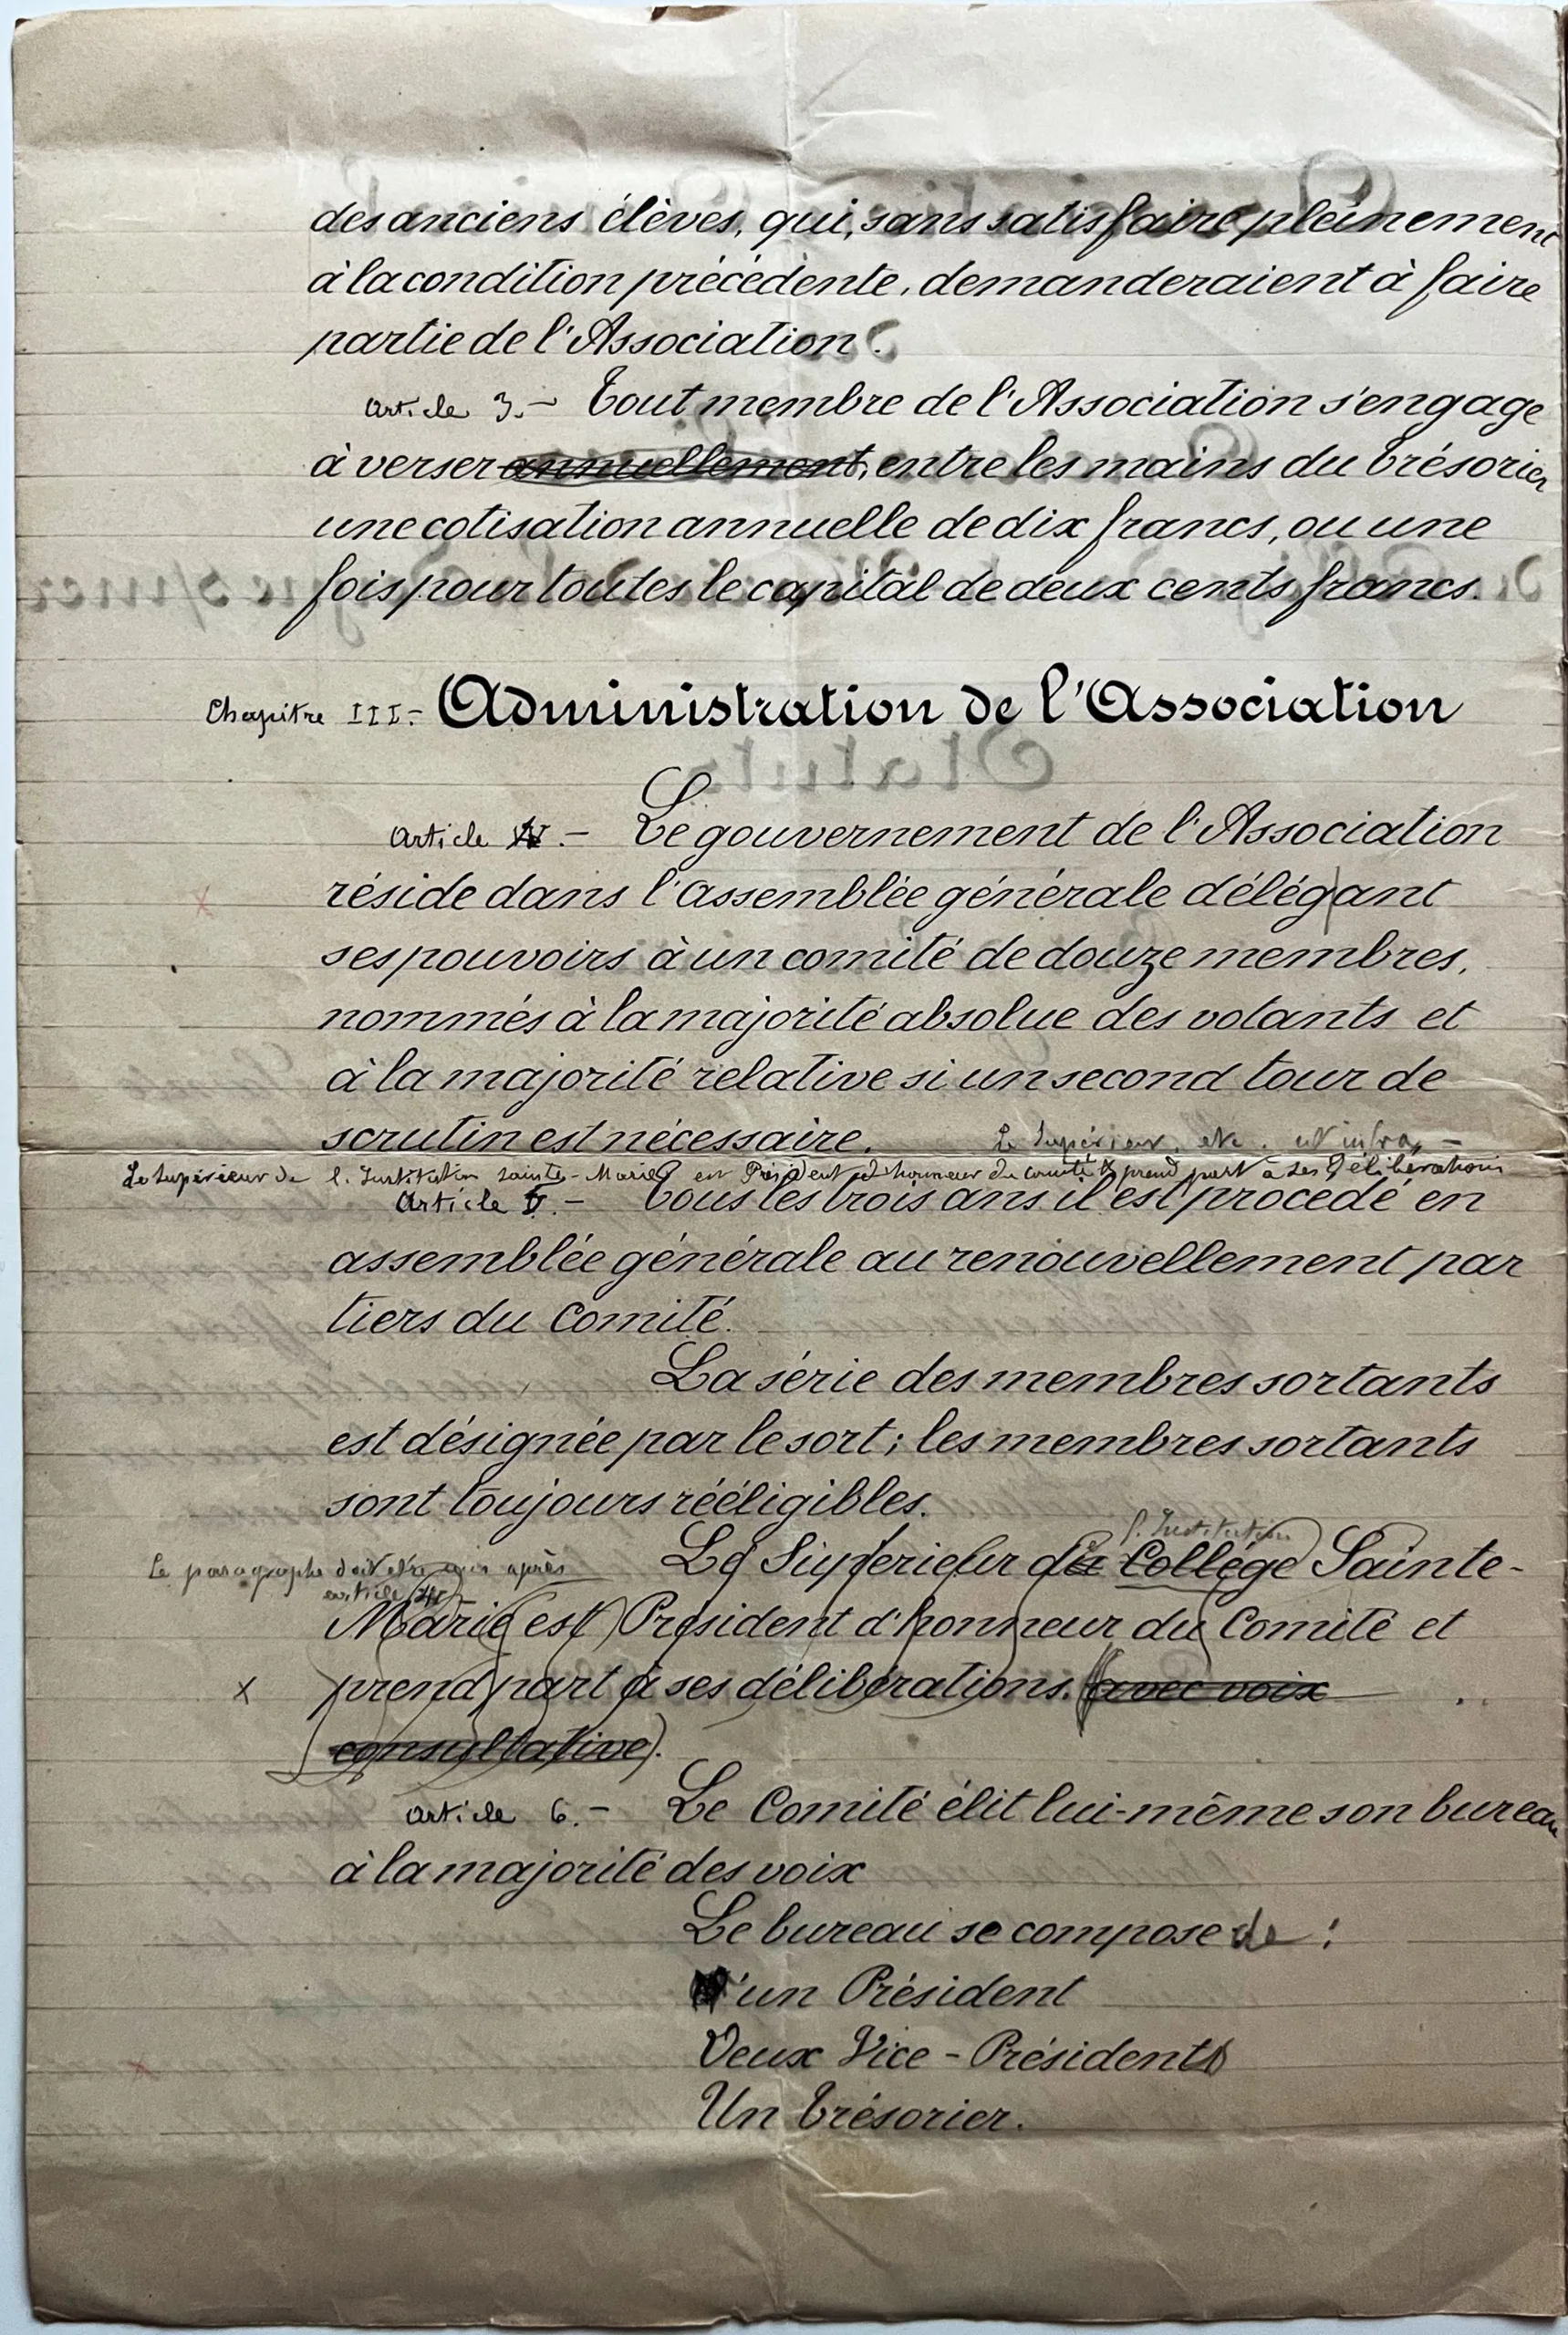 des anciens élèves, qui, sans satisfaire pleinement
à la condition précédente, demanderaient à faire
partie de l'Association.
Article 3.- Tout membre de l'Association s'engage
à verser annuellement, entre les mains du trésorier
une cotisation annuelle de dix francs, ou une
fois pour toutes le capital de deux cents francs.
Chapitre III.- Administration de l'Association
Article 4.- Le gouvernement de l'Association
réside dans l'assemblée générale délégant
ses pouvoirs à un comité de douze membres,
nommés à la majorité absolue des votants et
à la majorité relative si un second tour de
scrutin est nécessaire. Le Supérieur, etc. ut infra -
Le Supérieur de l'Institution Sainte-Marie est Président d'honneur du comité & prend part à ses délibérations
Article 5.- Tous les trois ans il est procédé en
assemblée générale au renouvellement par
tiers du Comité.
La série des membres sortants
est désignée par le sort ; les membres sortants
sont toujours rééligibles.
l'Institution
Le paragraphe doit être mis après Le Supérieur du Collège Sainte-
article
Marie est Président d'honneur du Comité et
x prend part à ses délibérations. (avec voix
consultative).
Article 6.- Le Comité élit lui-même son bureau
à la majorité des voix
Le bureau se compose de :
un Président
Deux Vice-Présidents
Un Trésorier.